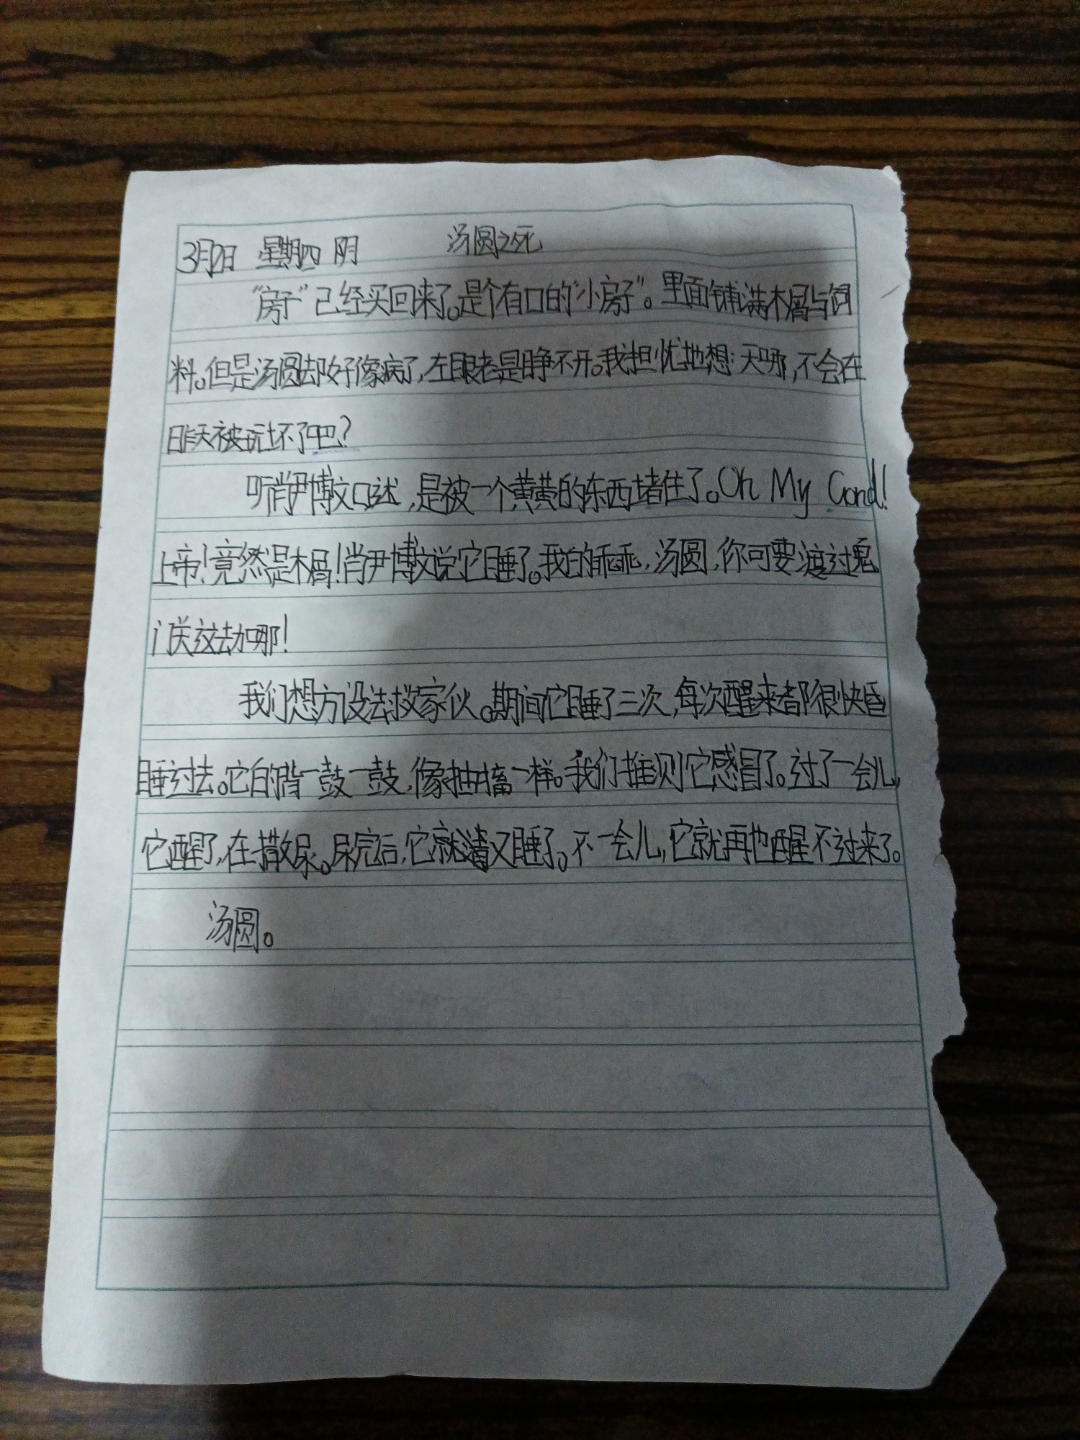 3月2日 星期四 阴 汤圆之死
“房子”已经买回来了。是个有口的“小房子”。里面铺满木屑与饲
料。但是汤圆却好像病了,左眼老是睁不开。我担忧地想:天哪,不会在
昨天被玩坏了吧?
听肖尹博文口述,是被一个黄黄的东西堵住了。Oh My Gond!
上帝!竟然是木屑!肖尹博文说它睡了。我的乖乖,汤圆,你可要渡过鬼
门关这去加哪!
我们想方设法救家伙。期间它睡了三次,每次醒来都很快昏
睡过去。它的背一鼓一鼓,像抽搐一样。我们推测它感冒了。过了一会儿,
它醒了,在撒尿。尿完后,它就又睡了。不一会儿,它就再也醒不过来了。
汤圆。